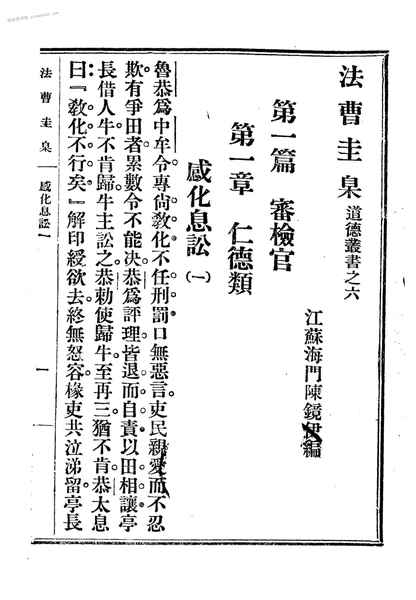 法曹圭臬 道德叢書之六
江蘇海門陳鏡伊編
第一篇 審檢官
第一章 仁德類
感化息訟(一)
魯恭爲中牟令專尙敎化不任刑罰口無惡言吏民親愛而不忍
欺有爭田者累數令不能决恭爲評理皆退而自責以田相讓亭
長借人牛不肯歸牛主訟之恭勅使歸牛至再三猶不肯恭太息
曰『敎化不行矣』解印綬欲去終無怒容椽吏共泣涕留亭長
法曹圭臬 感化息訟一 一